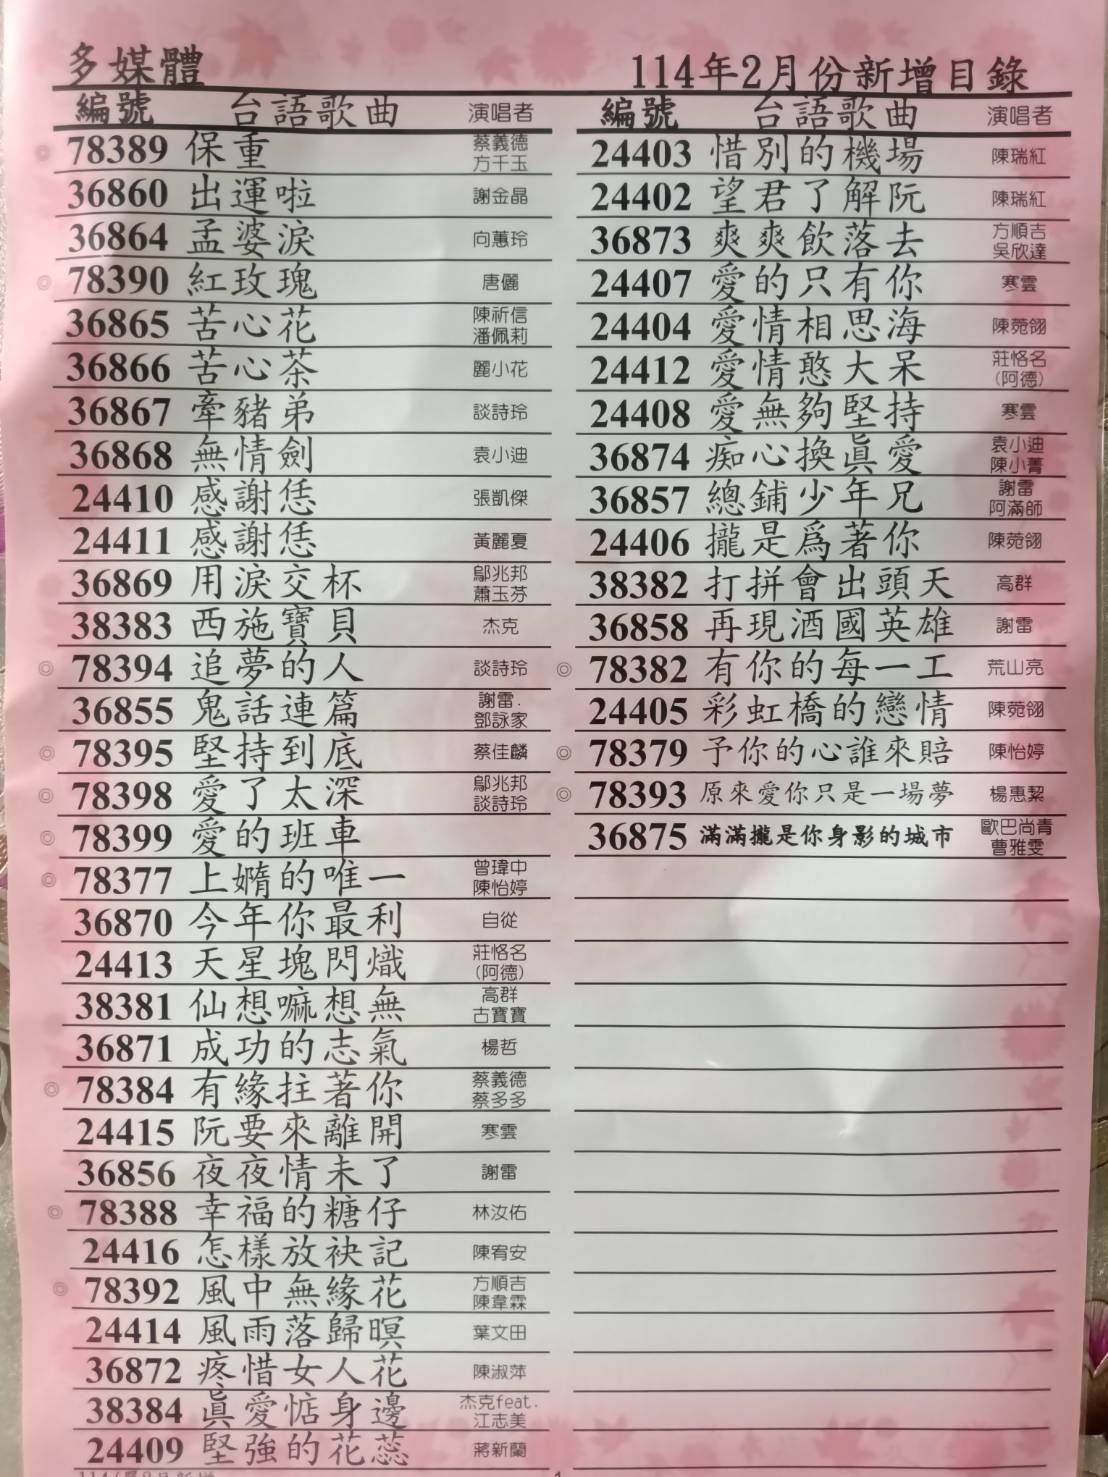 多媒體 114年2月份新增目錄
編號 台語歌曲 演唱者
◎ 78389 保重 蔡義德 方千玉
36860 出運啦 謝金晶
36864 孟婆淚 向蕙玲
◎ 78390 紅玫瑰 唐儷
36865 苦心花 陳祈信 潘佩莉
36866 苦心茶 麗小花
36867 牽豬弟 談詩玲
36868 無情劍 袁小迪
24410 感謝恁 張凱傑
24411 感謝恁 黃麗夏
36869 用淚交杯 鄔兆邦 蕭玉芬
38383 西施寶貝 杰克
◎ 78394 追夢的人 談詩玲
36855 鬼話連篇 謝雷. 鄧詠家
◎ 78395 堅持到底 蔡佳麟
◎ 78398 愛了太深 鄔兆邦 談詩玲
◎ 78399 愛的班車
◎ 78377 上媠的唯一 曾瑋中 陳怡婷
36870 今年你最利 自從
24413 天星塊閃熾 莊恪名 (阿德)
38381 仙想嘛想無 高群 古寶寶
36871 成功的志氣 楊哲
◎ 78384 有緣拄著你 蔡義德 蔡多多
24415 阮要來離開 寒雲
36856 夜夜情未了 謝雷
◎ 78388 幸福的糖仔 林汝佑
24416 怎樣放袂記 陳宥安
◎ 78392 風中無緣花 方順吉 陳韋霖
24414 風雨落歸暝 葉文田
36872 疼惜女人花 陳淑萍
38384 眞愛惦身邊 杰克feat. 江志美
24409 堅強的花蕊 蔣新蘭
編號 台語歌曲 演唱者
24403 惜別的機場 陳瑞紅
24402 望君了解阮 陳瑞紅
36873 爽爽飲落去 方順吉 吳欣達
24407 愛的只有你 寒雲
24404 愛情相思海 陳菀翎
24412 愛情憨大呆 莊恪名 (阿德)
24408 愛無夠堅持 寒雲
36874 痴心換眞愛 袁小迪 陳小菁
36857 總鋪少年兄 謝雷 阿滿師
24406 攏是爲著你 陳菀翎
38382 打拼會出頭天 高群
36858 再現酒國英雄 謝雷
◎ 78382 有你的每一工 荒山亮
24405 彩虹橋的戀情 陳菀翎
◎ 78379 予你的心誰來賠 陳怡婷
◎ 78393 原來愛你只是一場夢 楊惠絜
36875 滿滿攏是你身影的城市 歐巴尚青 曹雅雯